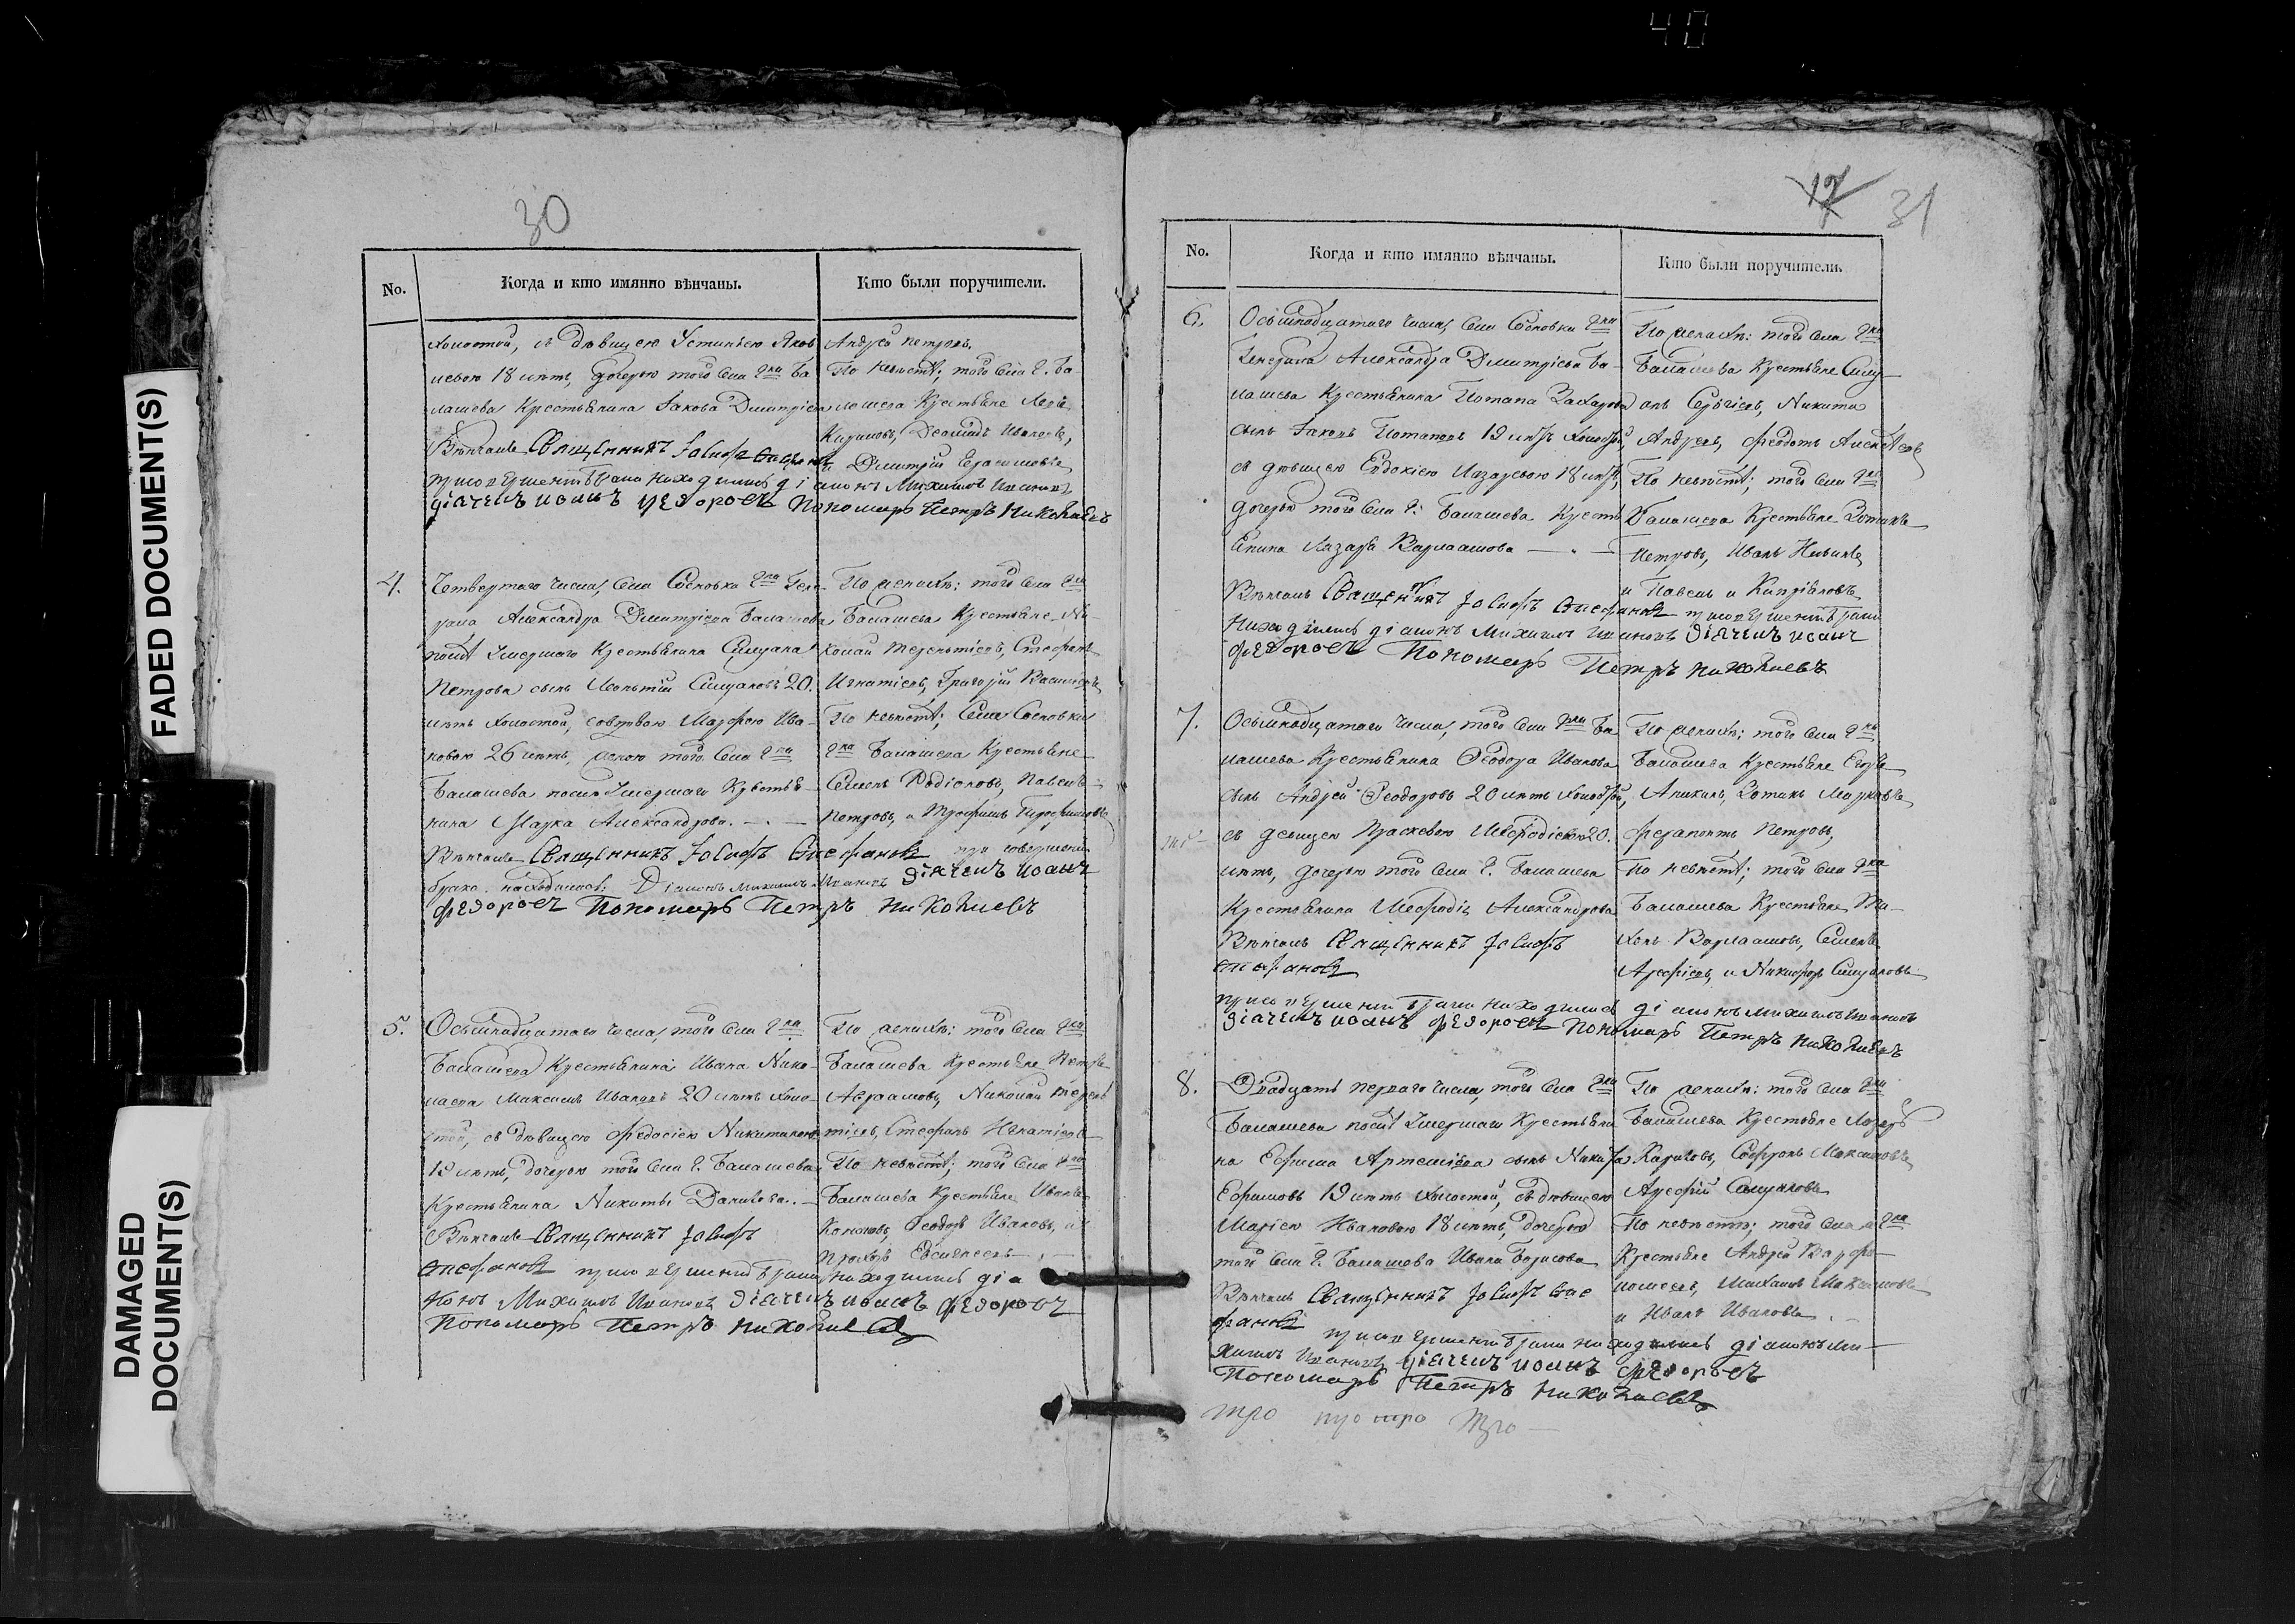 40
30
No.
Когда и кто имянно вѣнчаны.
Кто были поручители.
холостой, съ дѣвицею Устиньею Яков
левою 18 лѣтъ, дочерью того села г-на Ба
лашева Крестьянина Іакова Дмитріева
Вѣнчалъ Священникъ Іосифъ Стефановъ
при совершеніи брака находились діаконъ Михаилъ Ивановъ
діячекъ Иоанъ Федоровъ Пономарь Петръ Николаевъ
Андрей Петровъ,
По невѣстѣ; того села г. Ба
лашева Крестьяне
Дмитрій
4.
Четвертаго числа, села Сосновки г-на Гене
рала Александра Дмитріева Балашева
послѣ умершаго Крестьянина Симеона
Петрова сынъ Леонтій Симеоновъ 20.
лѣтъ холостой, со вдовою Марфою Ива
новою 26 лѣтъ, женою того села г-на
Балашева послѣ умершаго Крестья
нина Марка Александрова.
Вѣнчалъ Священникъ Іосифъ Стефановъ при совершеніи
брака находились: Діаконъ Михаилъ Ивановъ діячекъ Иоанъ
Федоровъ Пономарь Петръ Николаевъ
По женихѣ: того села г-на
Балашева Крестьяне Ни
колай Терентіевъ, Стефанъ
Игнатіевъ, Григорій Васильевъ
По невѣстѣ; села Сосновки
г-на Балашева Крестьяне
Семенъ Родіоновъ, Павелъ
Петровъ, и Трофимъ
5.
Осьмнадцатаго числа, того села г-на
Балашева Крестьянина Ивана Нико
лаева Максимъ Ивановъ 20 лѣтъ холо
стой, съ дѣвицею Федосіею Никитиною
19 лѣтъ, дочерью того села г. Балашева
Крестьянина Никиты Данилова.
Вѣнчалъ Священникъ Іосифъ
Стефановъ при совершеніи брака находились діа
конъ Михаилъ Ивановъ діячекъ Иоанъ Федоровъ
Пономарь Петръ Николаевъ
По женихѣ: того села г-на
Балашева Крестьяне Петръ
Авраамовъ, Николай Терен
тіевъ, Стефанъ Игнатіевъ
По невѣстѣ; того села г-на
Балашева Крестьяне Иванъ
Кононовъ, Феодоръ Ивановъ, и
Прохоръ
17 31
No.
Когда и кто имянно вѣнчаны.
Кто были поручители.
6.
Осьмнадцатаго числа, села Сосновки г-на
Генерала Александра Дмитріева Ба
лашева Крестьянина Потапа Захарова
сынъ Іаковъ Потаповъ 19 лѣтъ холостой,
съ дѣвицею Евдокіею Лазаревою 18 лѣтъ,
дочерью того села г. Балашева Кресть
янина Лазаря Варлаамова
Вѣнчалъ Священникъ Іосифъ Стефановъ при совершеніи брака
находились діаконъ Михаилъ Ивановъ діячекъ Иоанъ
Федоровъ Пономарь Петръ Николаевъ
По женихѣ: того села г-на
Балашева Крестьяне Симе
онъ Сергіевъ, Никита
Андреевъ, Федотъ Алексѣевъ
По невѣстѣ; того села г-на
Балашева Крестьяне Зотикъ
Петровъ, Иванъ
и Павелъ Кипріановъ
7.
Осьмнадцатаго числа, того села г-на Ба
лашева Крестьянина Феодора Иванова
сынъ Андрей Феодоровъ 20 лѣтъ холостой,
съ девицею Праскевою Меѳодіевою 20.
лѣтъ, дочерью того села г. Балашева
Крестьянина Меѳодія Александрова
Вѣнчалъ Священникъ Іосифъ
Стефановъ
при совершеніи брака находились діаконъ Михаилъ Ивановъ
діячекъ Иоанъ Федоровъ Пономарь Петръ Николаевъ
По женихѣ: того села г-на
Балашева Крестьяне Егоръ
Аникинъ, Зотикъ Марковъ
Ферапонтъ Петровъ,
По невѣстѣ; того села г-на
Балашева Крестьяне Ти
хонъ Варлаамовъ, Семенъ
Арефіевъ, и Никифоръ Симеоновъ
8.
Двадцать перваго числа, того села г-на
Балашева послѣ умершаго Крестьяни
на Ефима Артеміева сынъ Никита
Ефимовъ 19 лѣтъ холостой, съ дѣвицею
Маріею Ивановою 18 лѣтъ, дочерью
того села г. Балашева Ивана Борисова
Вѣнчалъ Священникъ Іосифъ Сте
фановъ при совершеніи брака находились діаконъ Ми
хаилъ Ивановъ діячекъ Иоанъ Федоровъ
Пономарь Петръ Николаевъ
По женихѣ: того села г-на
Балашева Крестьяне Лазарь
Софронъ Максимовъ
Арефій Симеоновъ
По невѣстѣ; того села г-на
Крестьяне Андрей Варфо
ломеевъ, Михаилъ Максимовъ
и Иванъ Ивановъ
FADED DOCUMENT(S)
DAMAGED
DOCUMENT(S)